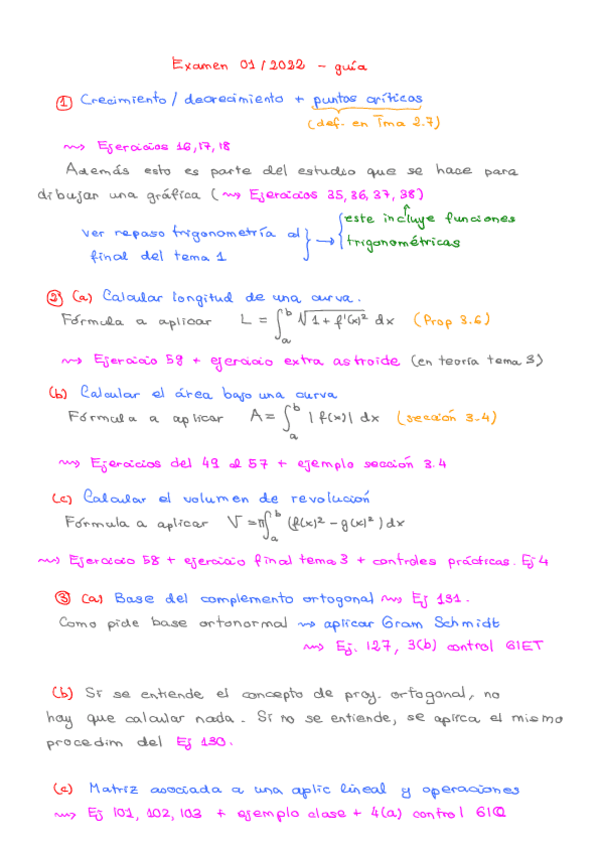 Examen 01/2022 - guía
① Crecimiento / decrecimiento + puntos críticos
(def. en Tma 2.7)
⇝ Ejercicios 16,17,18
Además esto es parte del estudio que se hace para
dibujar una gráfica (⇝ Ejercicios 35,36,37,38)
ver repaso trigonometría al
final del tema 1
→
este incluye funciones
trigonométricas
② (a) Calcular longitud de una curva.
Fórmula a aplicar L = ∫_a^b √(1 + f'(x)² dx (Prop 3.6)
⇝ Ejercicio 59 + ejercicio extra astroide (en teoría tema 3)
(b) Calcular el área bajo una curva
Fórmula a aplicar A = ∫_a^b |f(x)| dx (sección 3.4)
⇝ Ejercicios del 49 al 57 + ejemplo sección 3.4
(c) Calcular el volumen de revolución
Fórmula a aplicar V = π∫_a^b (f(x)² - g(x)²) dx
⇝ Ejercicio 58 + ejercicio final tema 3 + controles prácticas. Ej 4
③ (a) Base del complemento ortogonal ⇝ Ej 131.
Como pide base ortonormal ⇝ aplicar Gram Schmidt
⇝ Ej. 127, 3(b) control GIET
(b) Si se entiende el concepto de proy. ortogonal, no
hay que calcular nada. Si no se entiende, se aplica el mismo
procedim del Ej 130.
(c) Matriz asociada a una aplic lineal y operaciones
⇝ Ej 101, 102, 103 + ejemplo clase + 4(a) control